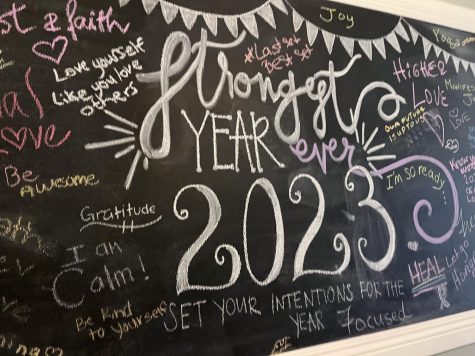 & faith
Love yourself
Like you love
others
Love
Be
Awesome
Gratitude
I am
Calm!
Be Kind
to yourself
Strongest
YEAR
ever
2023
SET YOUR INTENTIONS FOR THE
YEAR Focused
#Last set
Best set
Joy
Yoga
HigHer
LOVE
Our future
is up to us
Love
I'm so ready...
HEAL